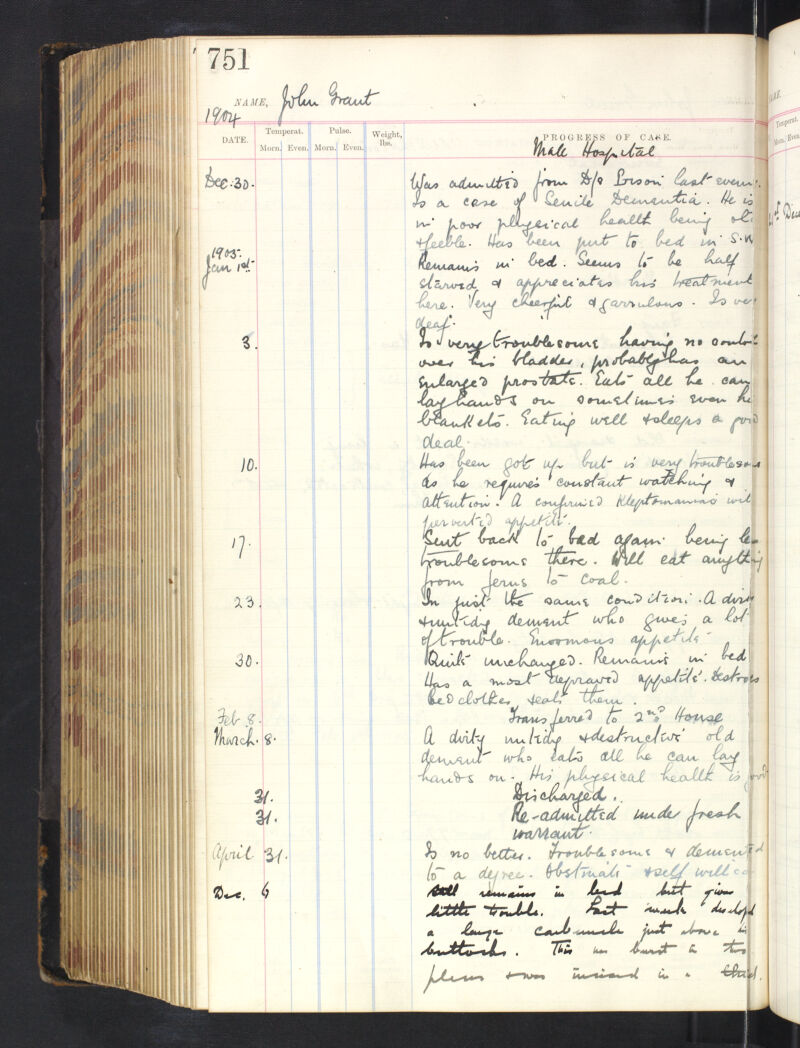 751
NAME, John Grant
1904
DATE. Temperat. Morn. Even. Pulse. Morn. Even. Weight, lbs. PROGRESS OF CASE.
Male Hospital
Dec. 30. Was admitted from D/o Prison last even
Is a case of Senile Dementia. He is
in poor physical health being ol
& feeble. Has been put to bed in S.
1905.
Jan 1st. Remains in bed. Seems to be half
starved & appreciates his treatment
here. Very cheerful & garrulous. Is ver
deaf.
3. Is very troublesome having no contro
over his bladder, probably has an
enlarged prostate. Eats all he can
lay hands on sometimes even his
blankets. Eating well & sleeps a good
deal.
10. Has been got up but is very troublesome
as he requires constant watching &
attention. A confirmed Kleptomaniac wit
perverted appetite.
17. Sent back to bed again being le
troublesome there. Will eat anything
from ferns to coal.
23. In just the same condition. A dirty
& untidy dement who gives a lot
of trouble. Enormous appetite
30. Quite unchanged. Remains in bed
Has a most depraved appetite. Destroys
bedclothes & eats them.
Feb 8. Transferred to 2nd House
March. 8. A dirty untidy & destructive old
dement who eats all he can lay
hands on. His physical health is good
31. Discharged.
31. Re-admitted under fresh
warrant.
April 31. Is no better. Troublesome & demented
to a degree. Obstinate & self willed
Dec. 6 Still remains in bed but gives
little trouble. Last week develop
a large carbuncle just above his
buttocks. This has burst in two
places & was incised in a
TURE.
Temperat.
Morn. Even.